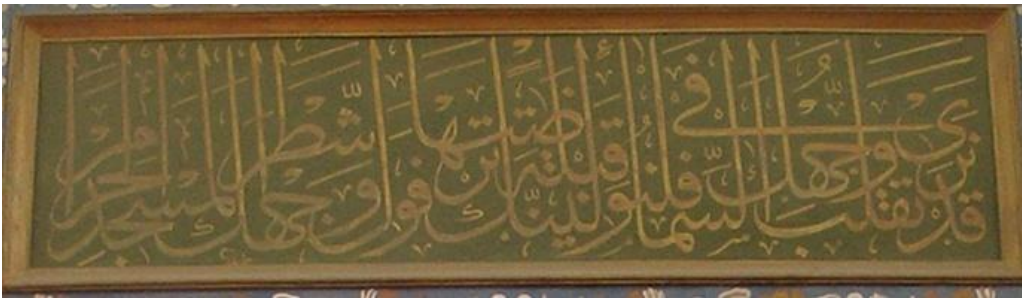 قد نرى تقلب وجهك في السماء فلنولينك قبلة ترضىها فول وجهك شطر المسجد الحرام